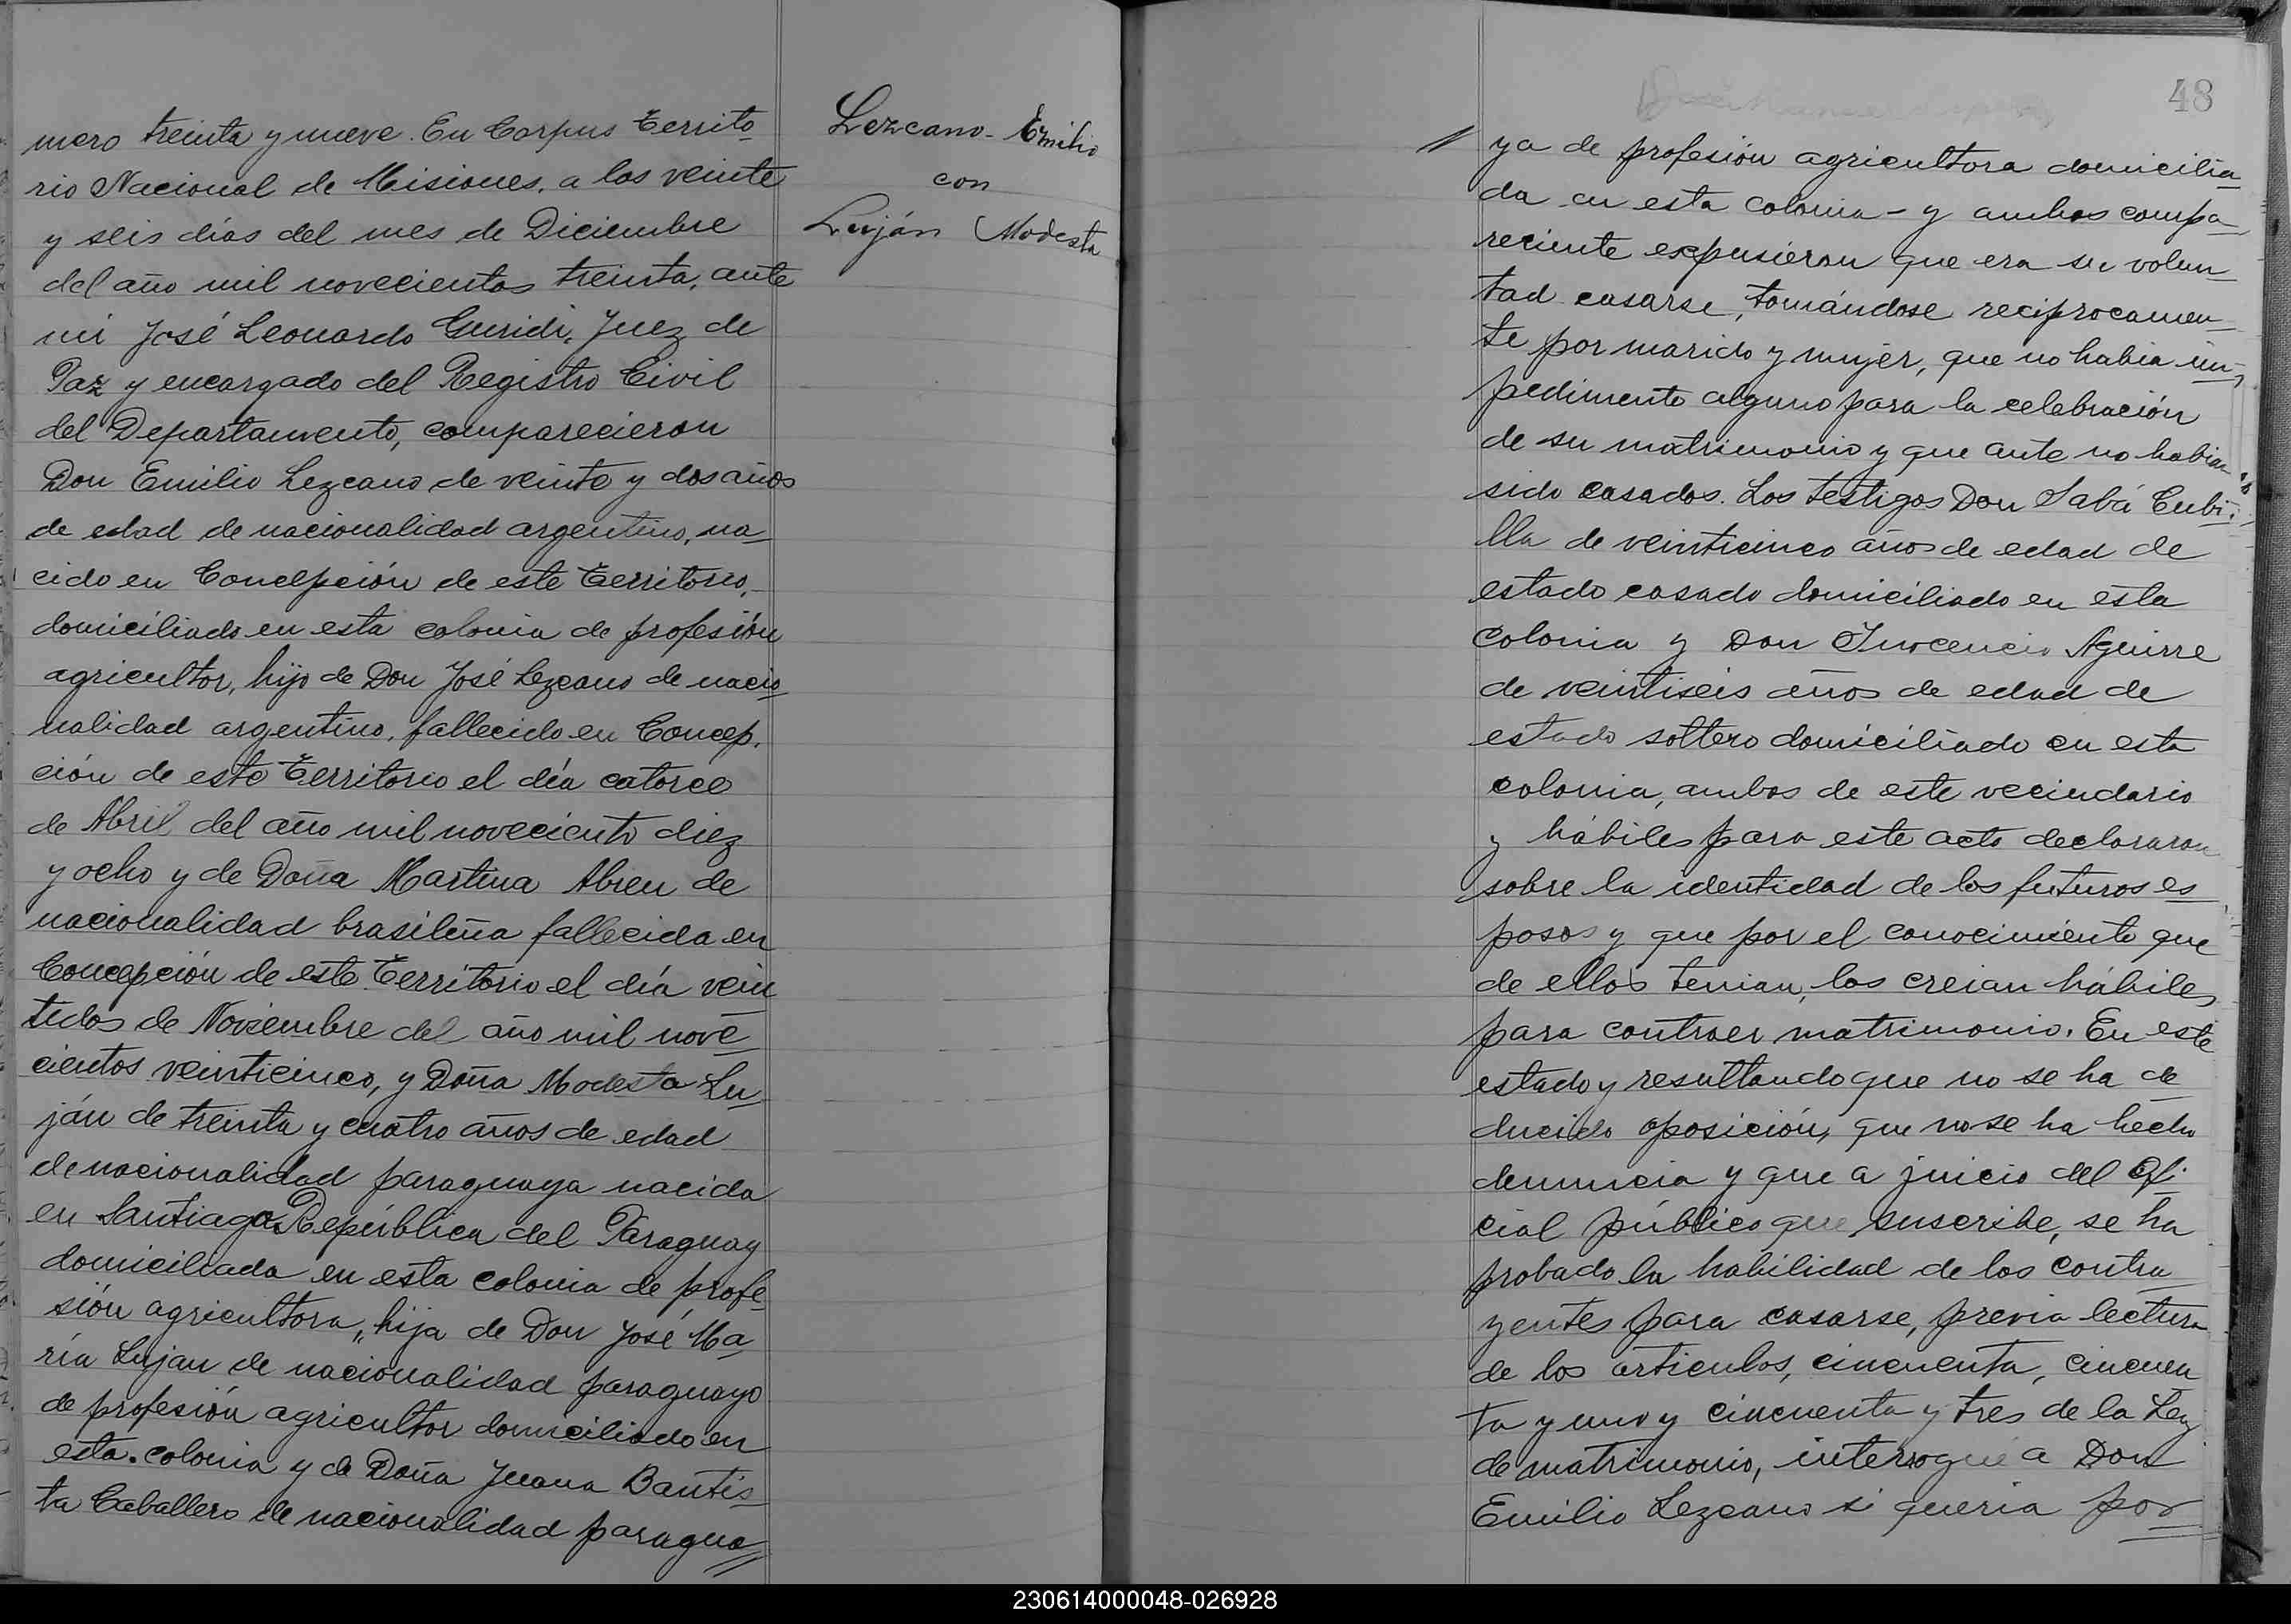 mero treinta y nueve. En Corpus Territo
rio Nacional de Misiones, a los veinte
y seis días del mes de Diciembre
del año mil novecientos treinta, ante
mi José Leonardo Guridi, Juez de
Paz y encargado del Registro Civil
del Departamento, comparecieron
Don Emilio Lezcano de veinte y dos años
de edad de nacionalidad argentino, na
cido en Concepción de este Territorio,
domiciliado en esta colonia de profesión
agricultor, hijo de Don José Lezcano de nacio
nalidad argentino, fallecido en Concep.
ción de este Territorio el día catorce
de Abril del año mil noveciento diez
y ocho y de Doña Martina Abreu de
nacionalidad brasileña fallecida en
Concepción de este Territorio el día vein
tidos de Noviembre del año mil nove
cientos veinticinco, y Doña Modesta Lu
ján de treinta y cuatro años de edad
de nacionalidad paraguaya nacida
en Santiago República del Paraguay
domiciliada en esta colonia de profe
sión agricultora, hija de Don José Ma
ría Lujan de nacionalidad paraguayo
de profesión agricultor domiciliado en
esta colonia y de Doña Juana Bautis
ta Caballero de nacionalidad paragua
Lezcano - Emilio
con
Luján Modesta
48
ya de profesión agricultora domicilia
da en esta colonia - y ambos compa
reciente expusieron que era su volun
tad casarse, tomándose reciprocamen
te por marido y mujer, que no habia im
pedimento alguno para la celebración
de su matrimonio y que ante no habian
sido casados. Los testigos Don Sabá Cubi
lla de veinticinco años de edad de
estado casado domiciliado en esta
colonia y Don Inocencio Aguirre
de veintiseis años de edad de
estado soltero domiciliado en esta
colonia, ambos de este vecindario
y hábiles para este acto declararon
sobre la identidad de los futuros es
posos y que por el conocimiento que
de ellos tenian, los creian hábiles
para contraer matrimonio. En este
estado y resultando que no se ha de
ducido oposición, que no se ha hecho
denuncia y que a juicio del Ofi
cial público que suscribe, se ha
probado la habilidad de los contra
yentes para casarse, previa lectura
de los articulos, cincuenta, cincuen
ta y uno y cincuenta y tres de la Ley
de matrimonio, interrogué a Don
Emilio Lezcano si queria por
230614000048-026928